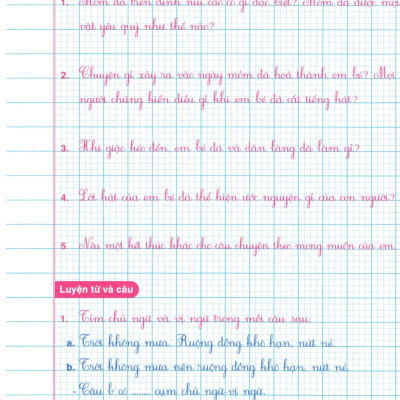 1. Mỏm đá trên đỉnh núi cao có gì đặc biệt? Mỏm đá được mọi
vật yêu quý như thế nào?
2. Chuyện gì xảy ra vào ngày mỏm đá hoá thành em bé? Mọi
người chứng kiến điều gì khi em bé đá cất tiếng hát?
3. Khi giặc kéo đến, em bé đá và dân làng đã làm gì?
4. Lời hát của em bé đá thể hiện ước nguyện gì của con người?
5 Nêu một kết thúc khác cho câu chuyện theo mong muốn của em.
Luyện từ và câu
1. Tìm chủ ngữ và vị ngữ trong mỗi câu sau:
a. Trời không mưa. Ruộng đồng khô hạn, nứt nẻ.
b. Trời không mưa nên ruộng đồng khô hạn, nứt nẻ.
- Câu b có ........ cụm chủ ngữ-vị ngữ.